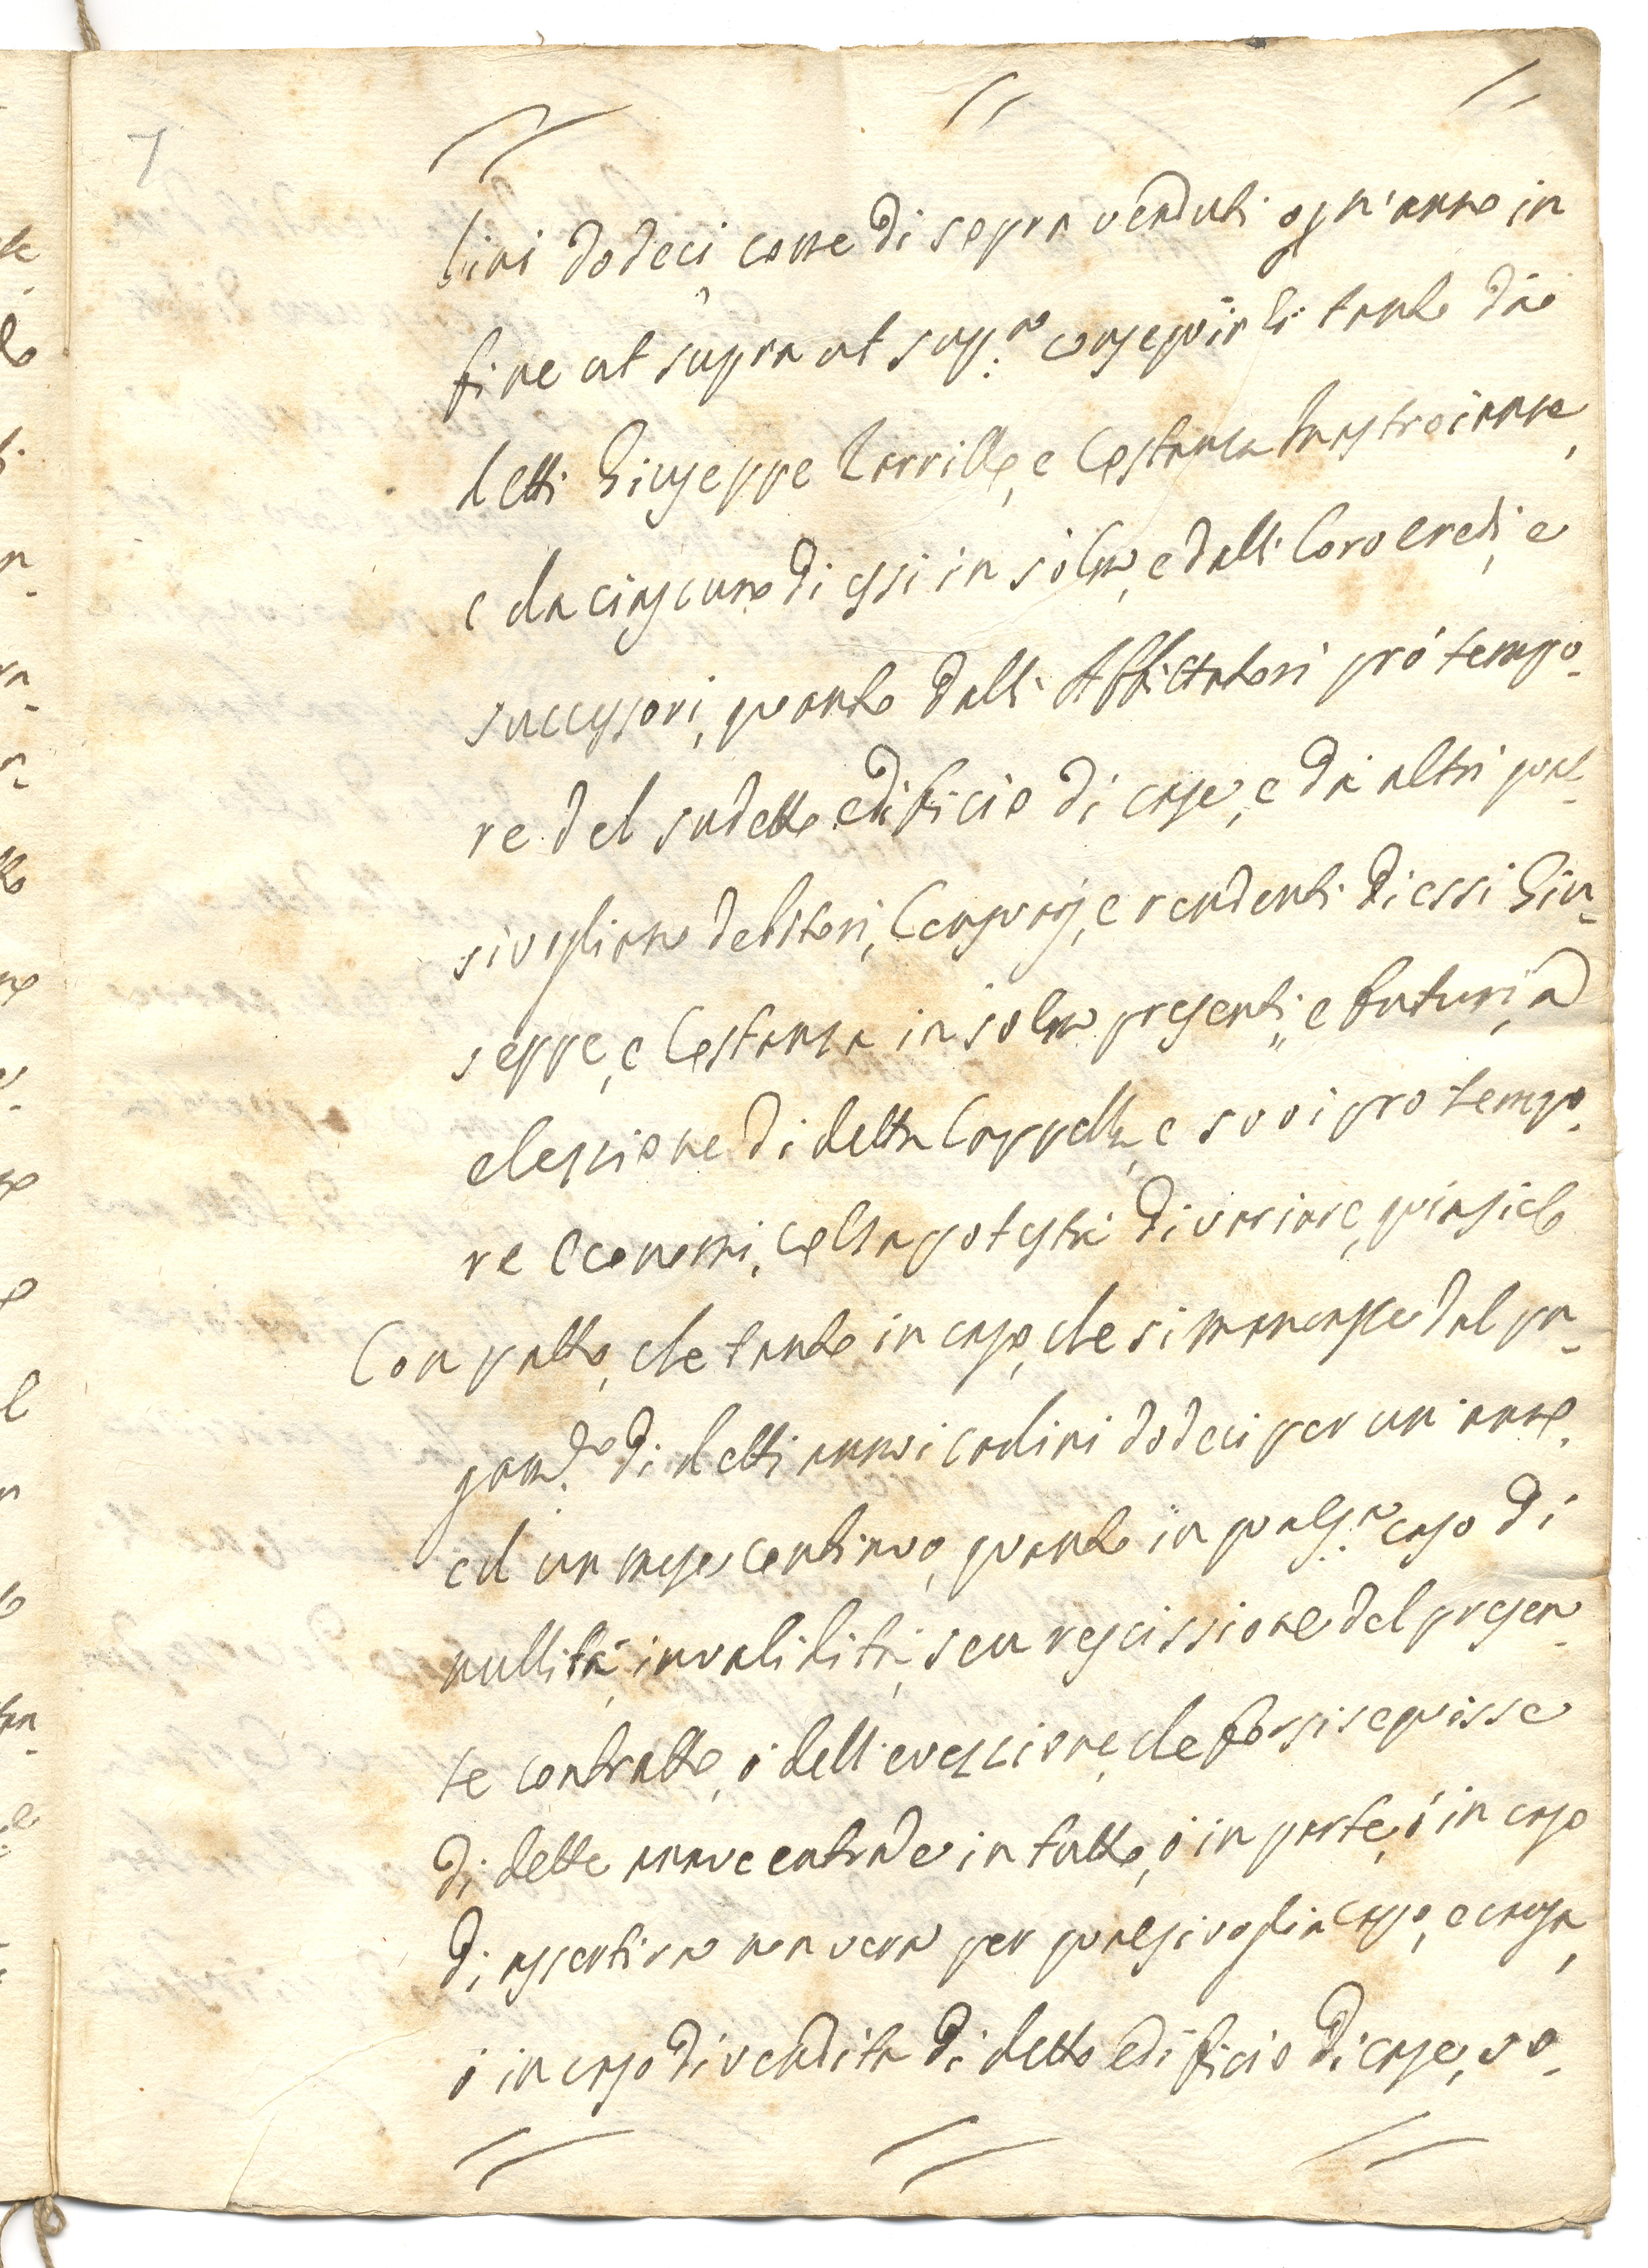 7
lini dodeci come di sopra venduti ogn'anno in
fine ut supra ut sup.ª conseguirli tanto da
detti Giuseppe Carrillo, e Costanza Mastroianne,
e da ciascuno di essi in solm, e dalli loro eredi, e
successori, quanto dalli Affittatori prò tempo-
re del sudetto edificio di case, e da altri qual-
sivogliano debitori, Censuarij, e rendenti di essi Giu-
seppe, e Costanza in solm presenti, e futuri, ad
elezzione di detta Cappella, e suoi pro tempo-
re Economi, colla potestà di variare, quia sic
Con patto, che tanto in caso, che si mancasse dal pa-
gam.to di detti annui carlini dodeci per un'anno,
ed un mese continuo, quanto in quals.ª caso di
nullità, invalidità, seu rescissione del presen-
te contratto, ò dell'evezzione, che forsi seguisse
di dette annue entrade in tutto, ò in parte, ò in caso
di assertiva non vera per qualsivoglia caso, e causa,
ò in caso di vendita di detto edificio di case, vo-